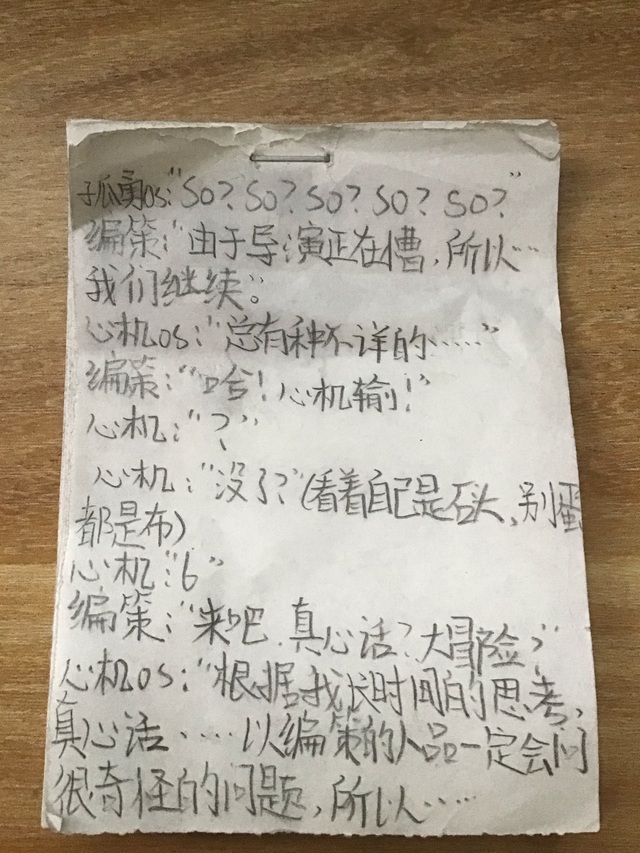 孤勇os:“so? so? so? so? so?”
编策:“由于导演正在懵,所以…
我们继续。”
心机os:“总有种不详的……”
编策:“哈!心机输!”
心机:“?”
心机:“没了?”(看着自己是石头,别蛋
都是布)
心机:“6”
编策:“来吧.真心话?大冒险?”
心机os:“根据我长时间的思考,
真心话……以编策的人品一定会问
很奇怪的问题,所以……